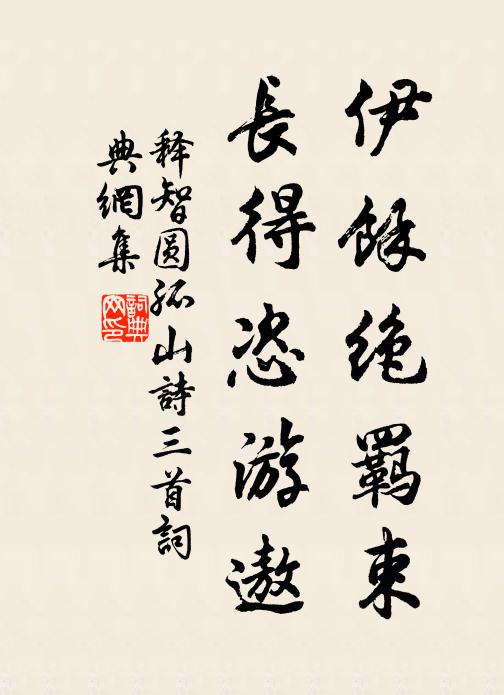 伊餘絶羈束
長得恣游遨
释智圓孤山詩三首詞
典網集
詞典网印